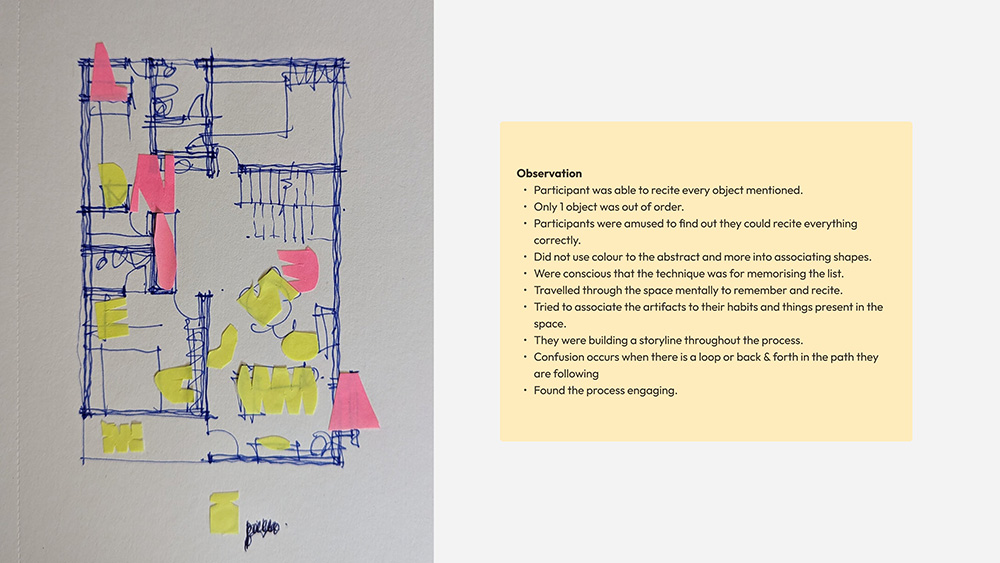 Observation
• Participant was able to recite every object mentioned.
• Only 1 object was out of order.
• Participants were amused to find out they could recite everything
correctly.
• Did not use colour to the abstract and more into associating shapes.
• Were conscious that the technique was for memorising the list.
• Travelled through the space mentally to remember and recite.
• Tried to associate the artifacts to their habits and things present in the
space.
• They were building a storyline throughout the process.
• Confusion occurs when there is a loop or back & forth in the path they
are following
• Found the process engaging.